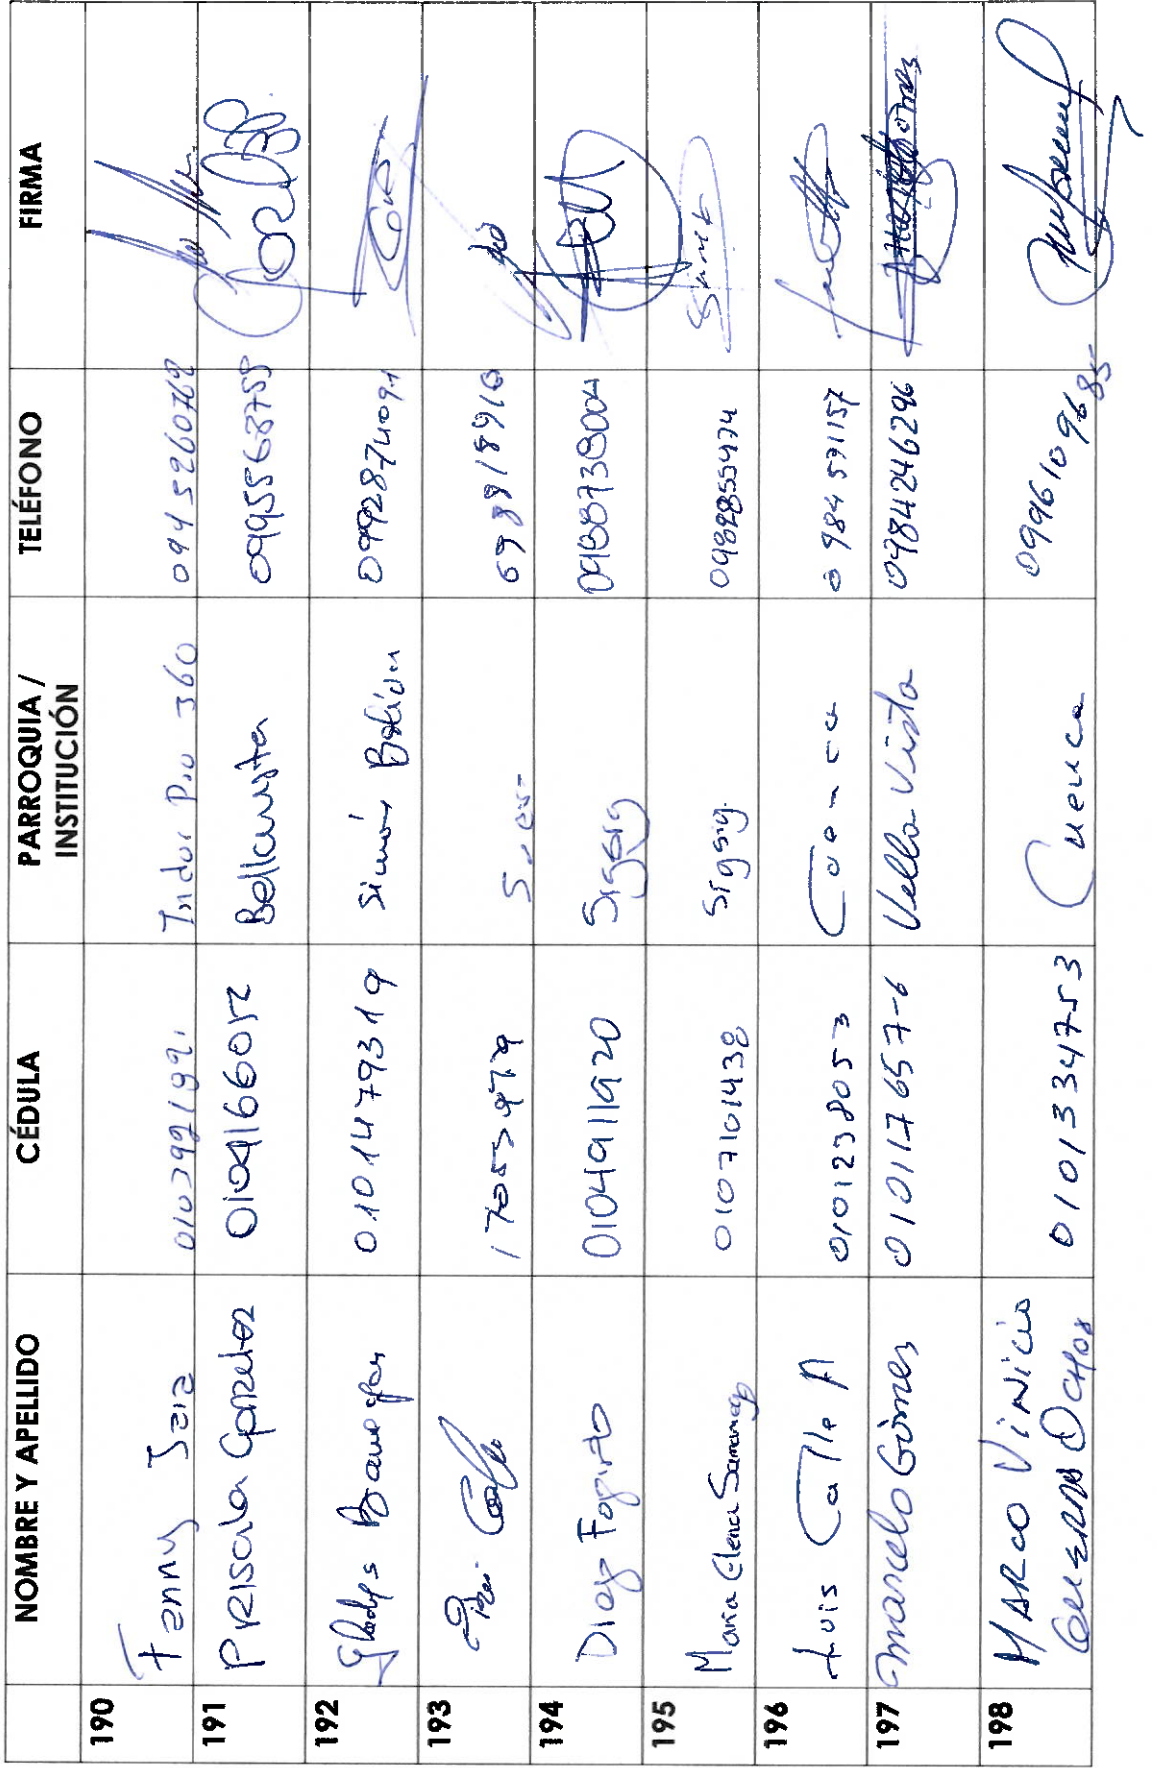 NOMBRE Y APELLIDO CÉDULA PARROQUIA / INSTITUCIÓN TELÉFONO FIRMA
190 Fanny Jara 0103992199 Indor Pro 360 0995260762
191 PRISCILA González 0104166052 Bellavista 0995568755
192 Gladys 0101479319 Simón Bolívar 0992874091
193
194 Diego Fajardo 0104911920 Sigsig
195 Maria Elena Samaniego 0107101438 Sigsig. 0982855474
196 Luis Calle A 0101238053 Cuenca 0984571157
197 Marcelo Gómez 010117657-6 Vella Vista 0984246296
198 MARCO VINICIO GUERRERO OCHOA 0101334753 Cuenca 0996109685